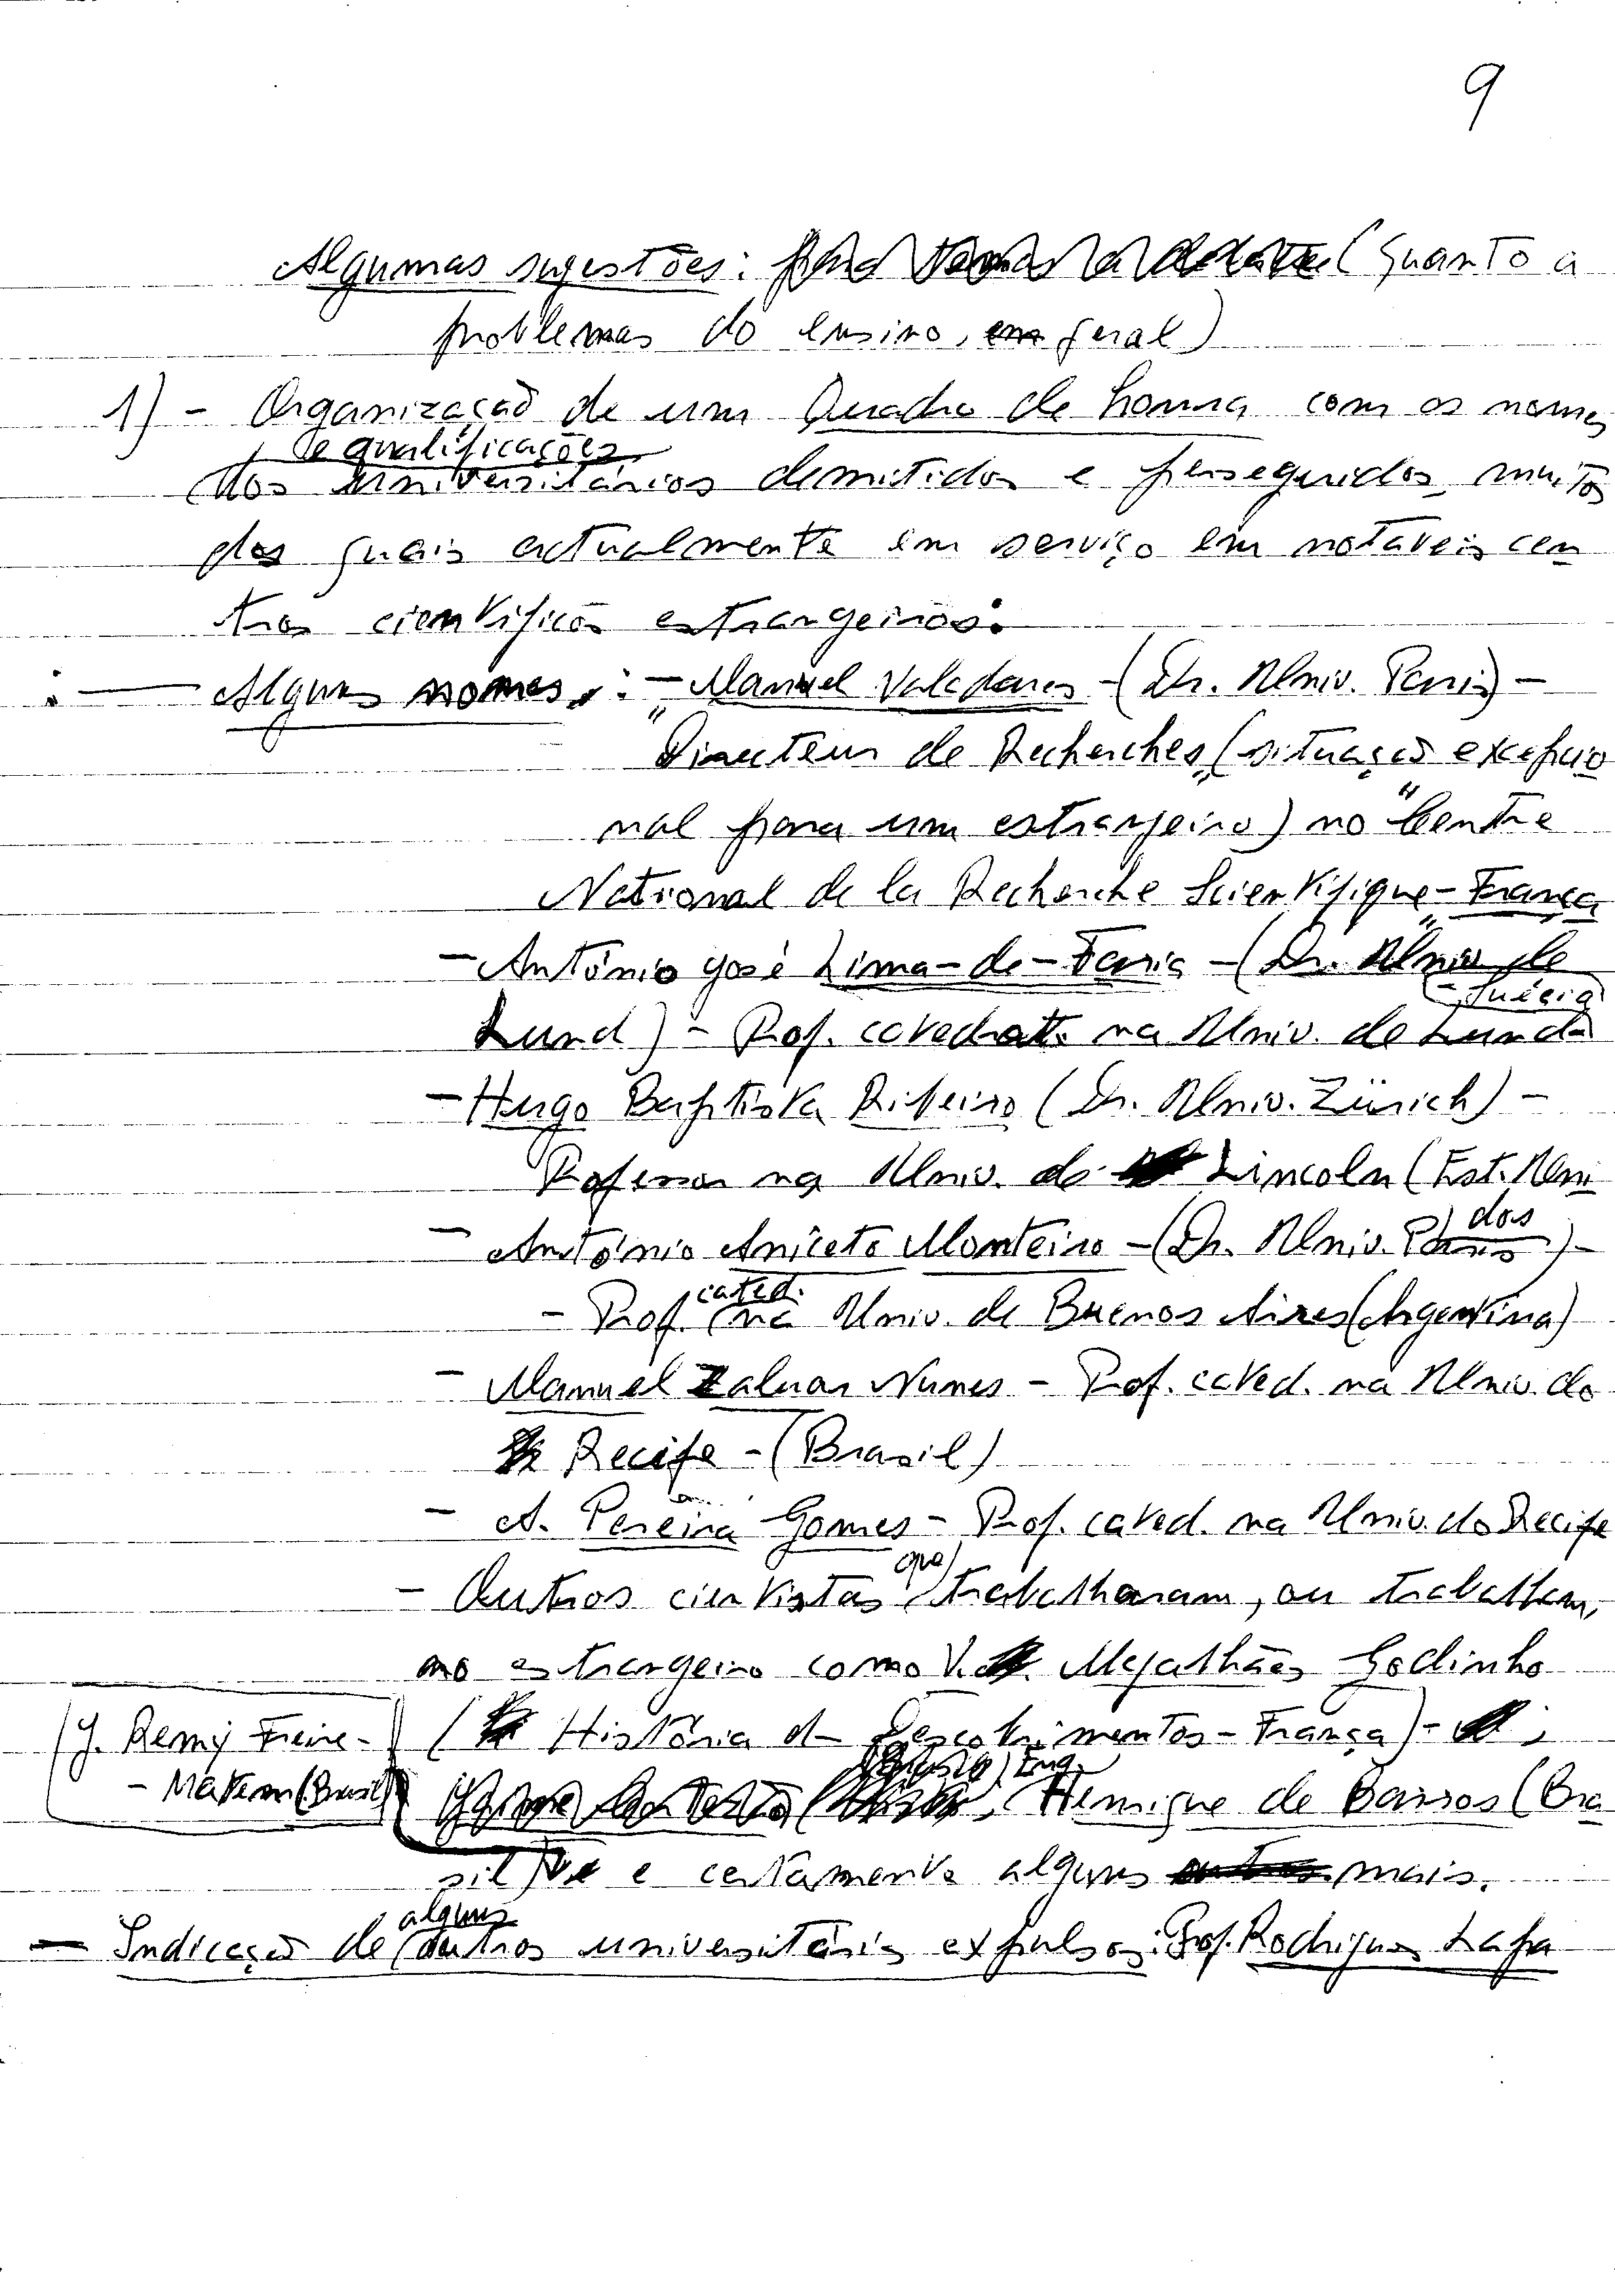 9
Algumas sugestões: (quanto a
problemas do ensino, em geral)
1) - Organização de um Quadro de honra com os nomes
e qualificações
dos universitários demitidos e perseguidos, muitos
dos quais actualmente em serviço em notáveis cen
tros científicos estrangeiros:
: — Alguns nomes: - Manuel Valadares - (Dr. Univ. Paris) -
"Directeur de Recherches" (situação excepcio
nal para um estranjeiro) no "Centre
National de la Recherche Scientifique" - França
- António José Lima-de-Faria - (Dr. Univ de
- Suécia
Lund) - Prof. catedrat. na Univ. de Lund
- Hugo Baptista Ribeiro (Dr. Univ. Zürich) -
Professor na Univ. de Lincoln (Est. Uni
dos)
- António Aniceto Monteiro - (Dr. Univ. Paris) -
cated.
- Prof. na Univ. de Buenos Aires (Argentina)
- Manuel Zaluar Nunes - Prof. cated. na Univ. do
Recife - (Brasil)
- A. Pereira Gomes - Prof. cated. na Univ. do Recife
que
- Outros cientistas trabalharam, ou trabalham,
no estrangeiro como V. Magalhães Godinho
(J. Remy Freire - (História d- Descobrimentos - França) - ;
- Matem (Brasil) Eng. Henrique de Barros (Bra
sil) e certamente alguns mais.
alguns
- Indicação de outros universitários expulsos: Prof. Rodrigues Lapa